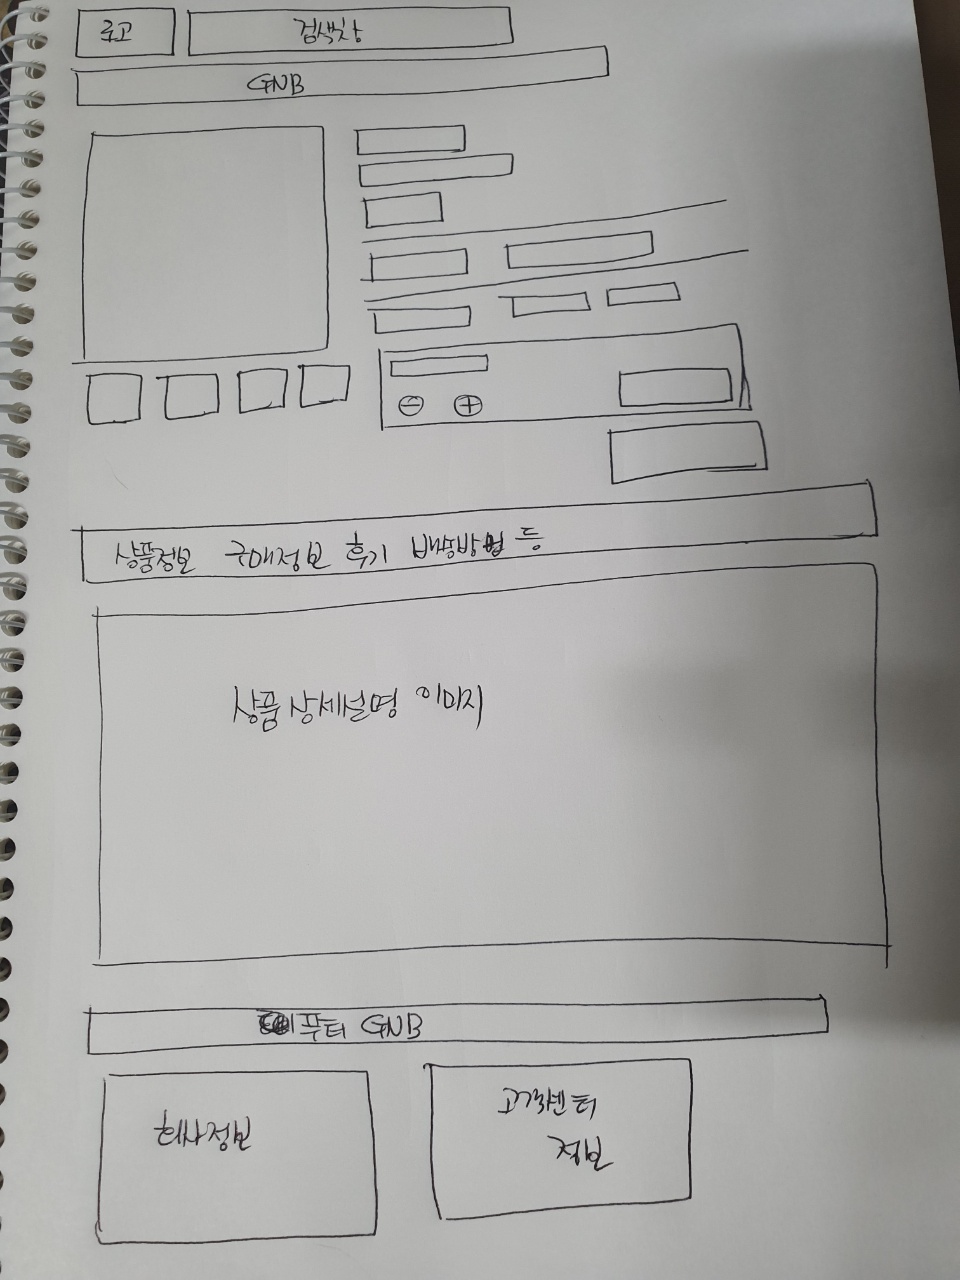 로고
검색창
GNB
상품정보 구매정보 후기 배송방법 등
상품 상세설명 이미지
푸터 GNB
회사정보
고객센터
정보